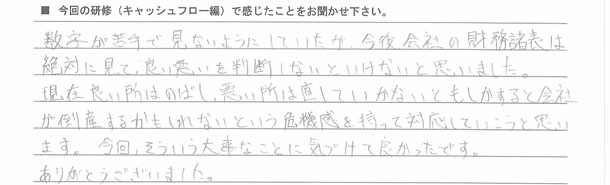 ■ 今回の研修（キャッシュフロー編）で感じたことをお聞かせ下さい。
数字が苦手で見ないようにしていたが、今後会社の財務諸表は
絶対に見て、良い悪いを判断しないといけないと思いました。
現在良い所はのばし、悪い所は直していかないともしかすると会社
が倒産するかもしれないという危機感を持って対応していこうと思い
ます。今回、そういう大事なことに気づけて良かったです。
ありがとうございました。